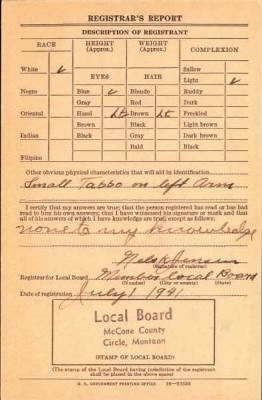 REGISTRAR'S REPORT
DESCRIPTION OF REGISTRANT
RACE HEIGHT (Approx.) WEIGHT (Approx.) COMPLEXION
White ✓ Sallow
EYES HAIR Light ✓
Negro Blue ✓ Blonde Ruddy
Gray Red Dark
Oriental Hazel Lt Brown Lt Freckled
Brown Black Light brown
Indian Black Gray Dark brown
Bald Black
Filipino
Other obvious physical characteristics that will aid in identification
Small Tabbo on left Arm
I certify that my answers are true; that the person registered has read or has had
read to him his own answers; that I have witnessed his signature or mark and that
all of his answers of which I have knowledge are true, except as follows:
none to my knowledge
Nels K Jensen
(Signature of registrar)
Registrar for Local Board Member Local Board
(Number) (City or county) (State)
Date of registration July 1 1941
Local Board
McCone County
Circle, Montana
(STAMP OF LOCAL BOARD)
(The stamp of the Local Board having jurisdiction of the registrant
shall be placed in the above space)
U. S. GOVERNMENT PRINTING OFFICE